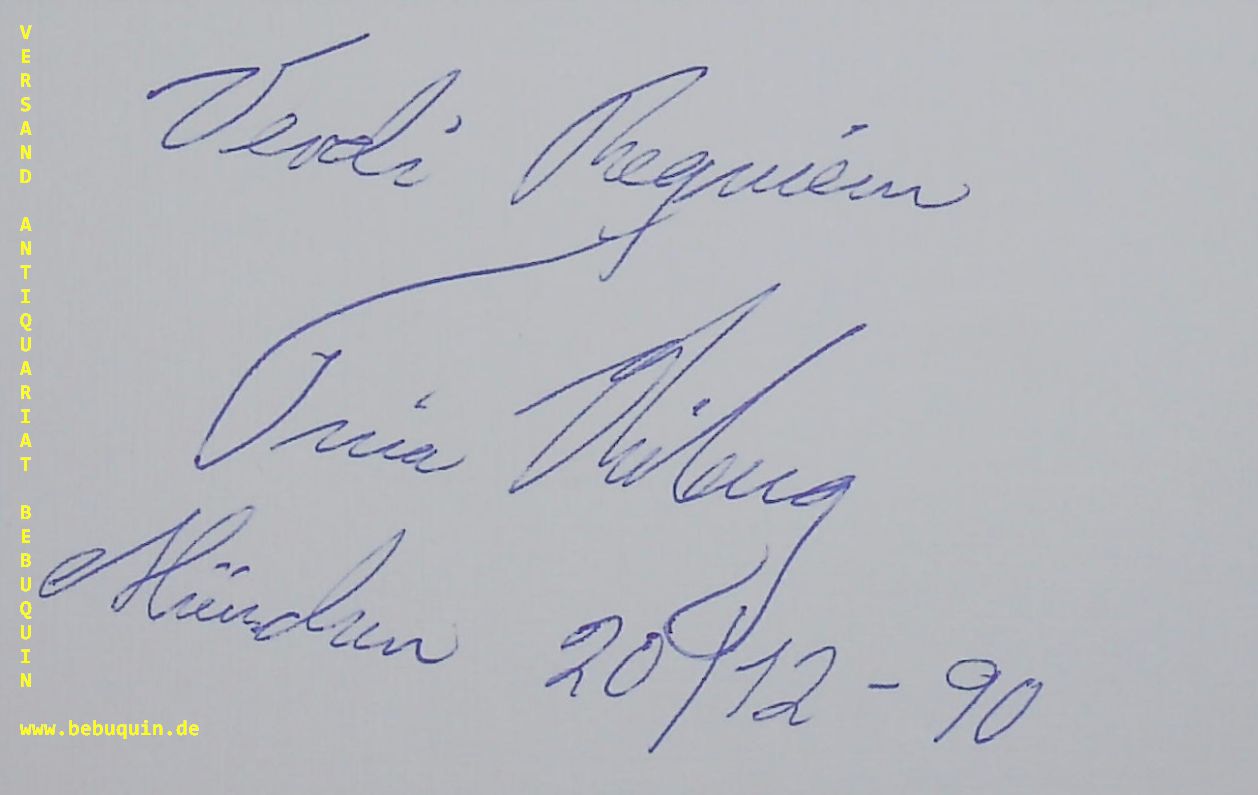 Verdi Requiem
Tina Kiberg
München 20/12-90
VERSAND ANTIQUARIAT BEBUQUIN
www.bebuquin.de